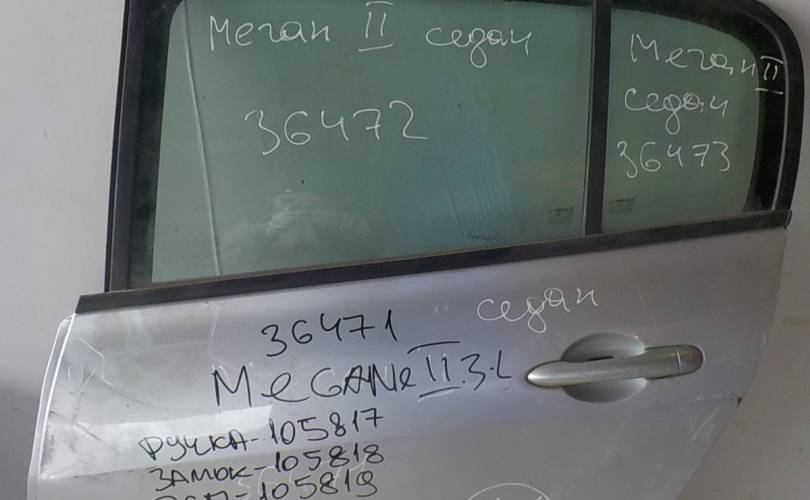 Меган II седан
36472
Меган II
седан
36473
36471
седан
MeGANe II 3-L
РУЧКА-105817
ЗАМОК-105818
-105819